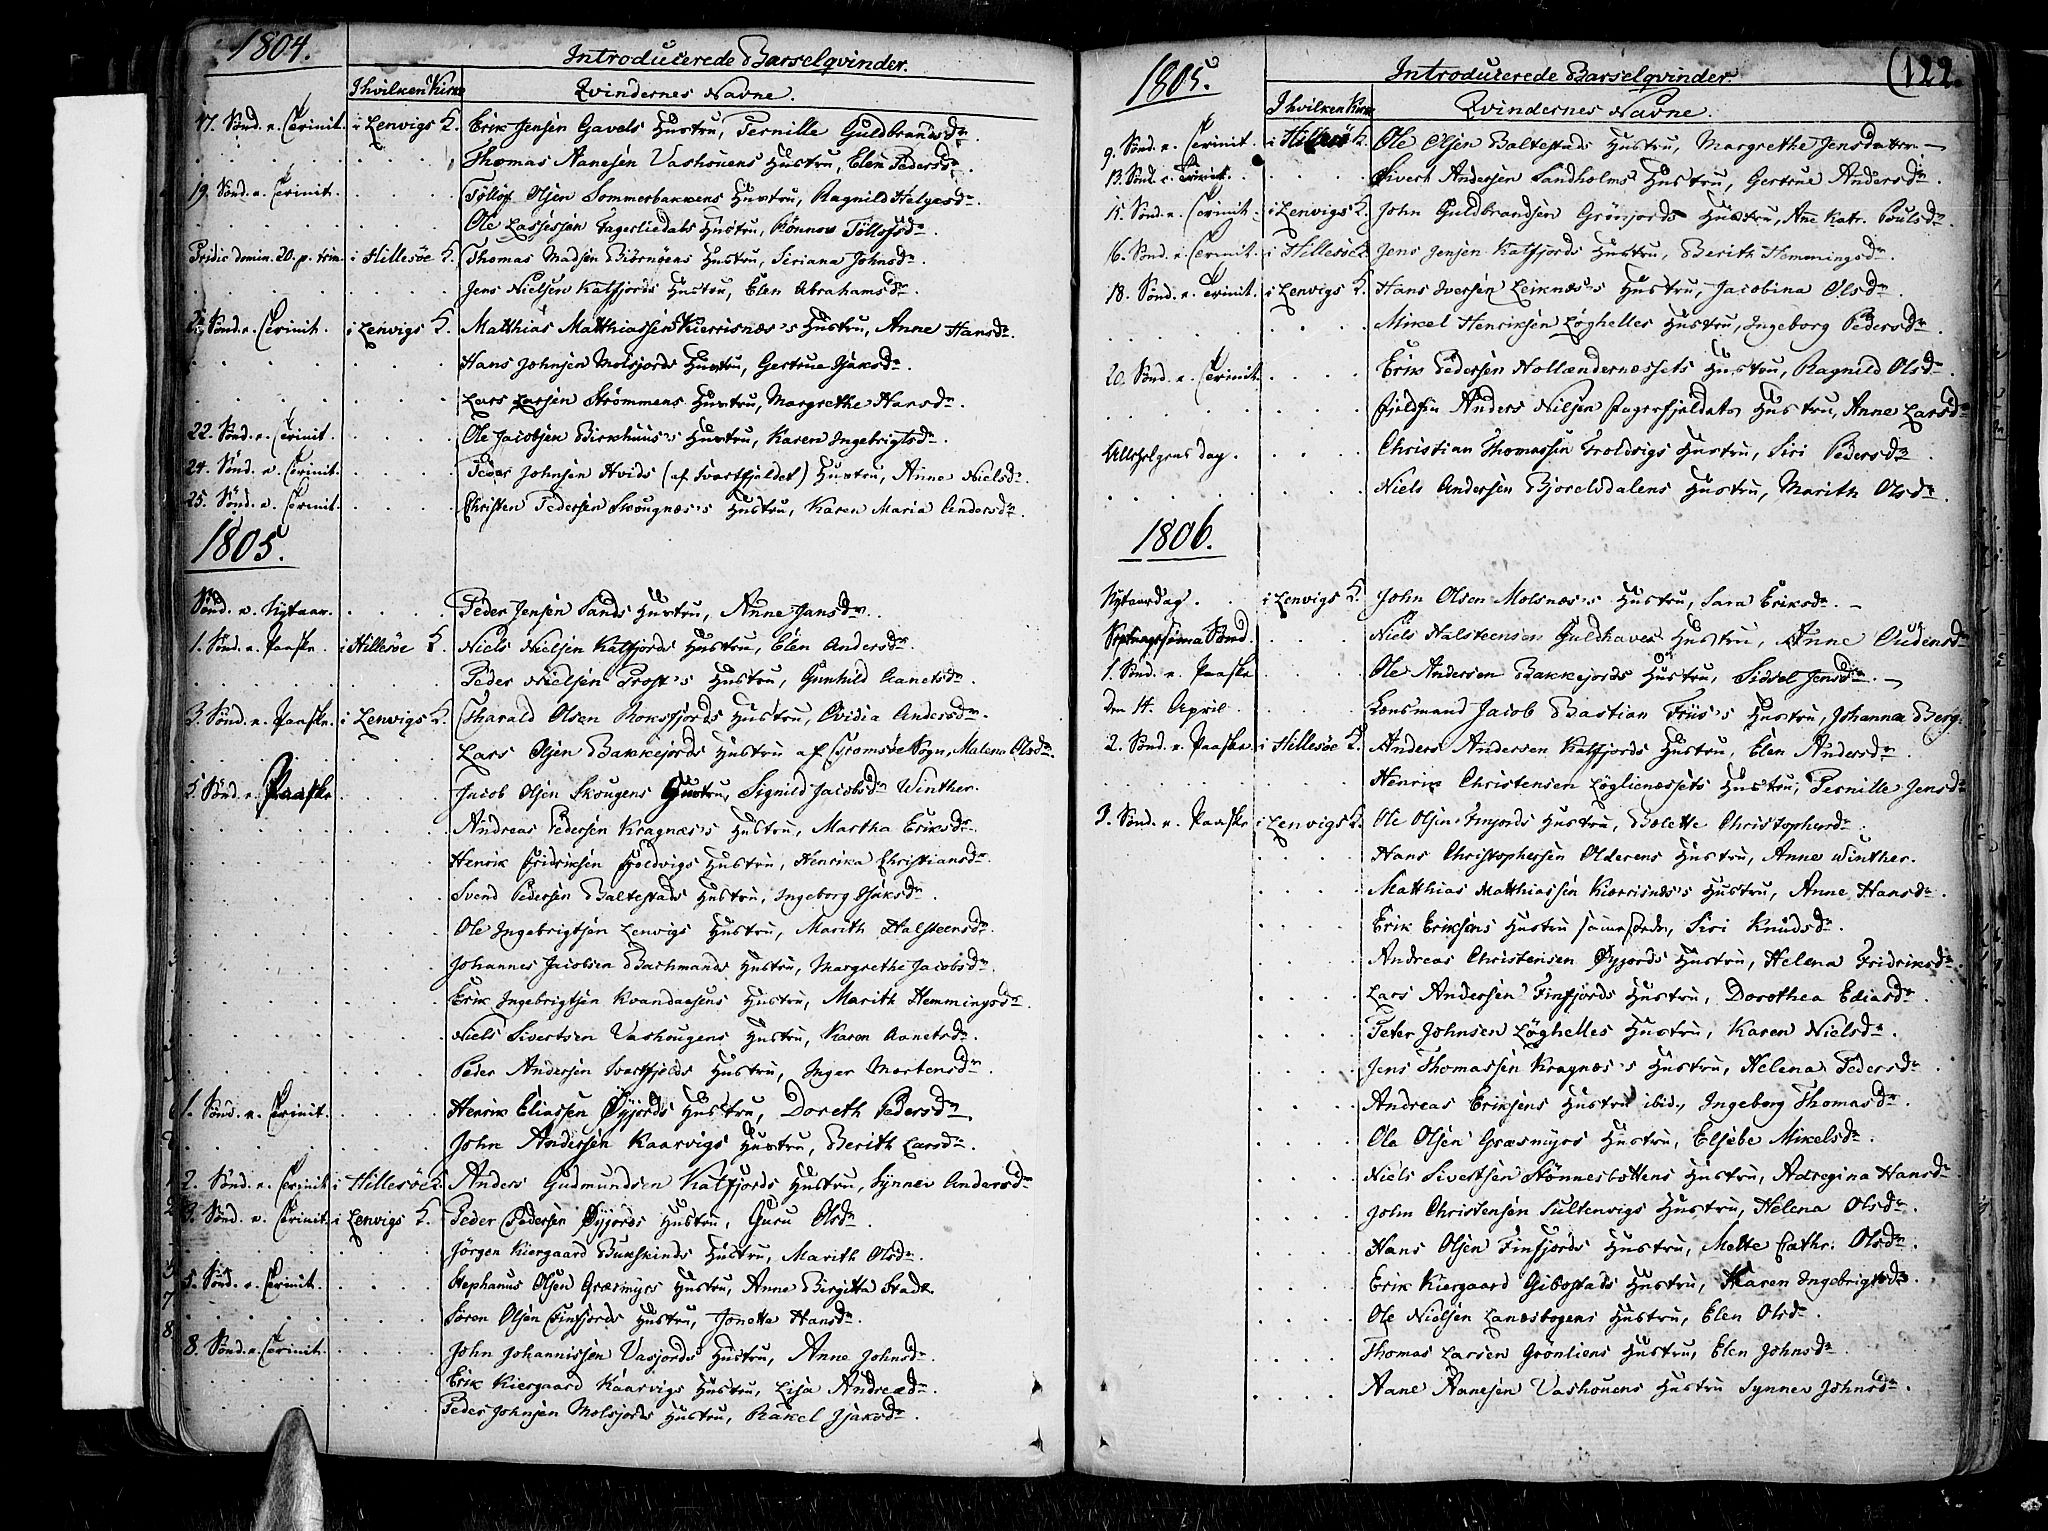 1804.
Introducerede Barselqvinder.
I hvilken Kirke
Qvindernes Navne.
17. Sönd. e. Trinit. i Lenvigs K. Erik Jensen Gavels Hustru, Pernille Guldbrandsdr.
Thomas Aanesen Vashouens Hustru, Elen Pedersdr.
19. Sönd. e. Trinit. Tölløf Olsen Sommerbakkens Hustru, Ragnild Helgesdr.
Ole Lassesen Fagerliedals Hustru, Rönnov Töllofsdr.
Pridie domin. 20. p. trin. i Hillesöe K. Thomas Madsen Biörnöens Hustru, Siriana Johnsdr.
Jens Nielsen Katfjords Hustru, Elen Abrahamsdr.
Sönd. e. Trinit. i Lenvigs K. Matthias Matthiassen Kierrisnæs's Hustru, Anne Hansdr.
Hans Johnsen Molsjords Hustru, Gertrue Isaksdr.
Lars Larsen Strömmens Hustru, Margrethe Hansdr.
22. Sönd. e. Trinit. Ole Jacobsen Birkhuus's Hustru, Karen Ingebrigtsdr.
24. Sönd. e. Trinit. Peder Johnsen Hvids (af Svartfjeldet) Hustru, Anne Nielsdr.
25. Sönd. e. Trinit. Christen Pedersen Skougnæs's Hustru, Karen Maria Andersdr.
1805.
Sönd. e. Nytaar. Peder Jensen Sands Hustru, Anne Jansdr.
1. Sönd. e. Paaske. i Hillesöe K. Niels Nielsen Katfjords Hustru, Elen Andersdr.
Peder Nielsen Prost's Hustru, Gunhild Aanetsdr.
3. Sönd. e. Paaske. i Lenvigs K. Tharald Olsen Roksfjords Hustru, Ovidia Andersdr.
Lars Olsen Bakkejords Hustru af Tromsöe Sogn, Malena Olsdr.
5. Sönd. e. Paaske Jacob Olsen Skougens Hustru, Signild Jacobsdr Winther.
Andreas Pedersen Kragnæs's Hustru, Martha Eriksdr.
Henrik Fridriksen Troldvigs Hustru, Henrika Christiansdr.
Svend Pedersen Baltestads Hustru, Ingeborg Isaksdr.
Ole Ingebrigtsen Lenvigs Hustru, Marith Halsteensdr.
Johannes Jacobsen Bachmands Hustru, Margrethe Jacobsdr.
Erik Ingebrigtsen Kvandaasens Hustru, Marith Hemmingsdr.
Niels Sivertsen Vashougens Hustru, Karen Aanetsdr.
Peder Andersen Svartfjelds Hustru, Inger Mortensdr.
1. Sönd. e. Trinit. Henrik Eliassen Øyjords Hustru, Doreth Pedersdr
John Andersen Kaarvigs Hustru, Berith Larsdr.
2. Sönd. e. Trinit. i Hillesöe K. Anders Gudmundsen Katfjords Hustru, Synnev Andersdr
3. Sönd. e. Trinit. i Lenvigs K. Peder Pedersen Øyjords Hustru, Guru Olsdr.
Jörgen Kiergaard Bukskinds Hustru, Marith Olsdr.
5. Sönd. e. Trinit. Stephanus Olsen Græsmyrs Hustru, Anne Birgitta Stads.
Sören Olsen Finfjords Hustru, Jonetta Hansdr.
8. Sönd. e. Trinit. John Johannissen Vasjords Hustru, Anne Johnsdr.
Erik Kiergaard Kaarvigs Hustru, Lisa Andreædr.
Peder Johnsen Molsjords Hustru, Rakel Isaksdr.
1805.
Introducerede Barselqvinder.
(122.
I hvilken Kirke
Qvindernes Navne.
9. Sönd. e. Trinit. i Hillesöe K. Ole Olsen Baltestads Hustru, Margrethe Jensdatter.
13. Sönd. e. Trinit. Sivert Andersen Sandholms Hustru, Gertrue Andersdr.
15. Sönd. e. Trinit. i Lenvigs K. John Guldbrandsen Grönjords Hustru, Ane Katr. Poulsdr.
16. Sönd. e. Trinit. i Hillesöe K. Jens Jensen Katfjords Hustru, Berith Hemmingsdr.
18. Sönd. e. Trinit. i Lenvigs K. Hans Iversen Leiknæs's Hustru, Jacobina Olsdr.
Mikel Henriksen Løghelles Hustru, Ingeborg Pedersdr.
20. Sönd. e. Trinit. Erik Pedersen Hollændernæssets Hustru, Ragnild Olsdr.
Anders Nilsen Fagerfjeldets Hustru, Anne Larsdr
Allehelgens dag. Christian Thomassen Troldvigs Hustru, Siri Pedersdr.
Niels Andersen Bjorelvdalens Hustru, Marith Olsdr.
1806.
Nytaarsdag. i Lenvigs K. John Olsen Molsnæs's Hustru, Sara Eriksdr.
Septuagesima Sönd. Niels Halsteensen Guldhaves Hustru, Anne Oudensdr
1. Sönd. e. Paaske Ole Andersen Bakkejords Hustru, Sidsel Jensdr.
Den 14. April. Lensmand Jacob Bastian Friis's Hustru, Johanna Berg.
2. Sönd. e. Paaske i Hillesöe K. Anders Andersen Katfjords Hustru, Elen Andersdr.
Henrik Christensen Løglienæssets Hustru, Pernille Jensdr
3. Sönd. e. Paaske i Lenvigs K. Ole Olsen Hustru, Bolette Christophersdr
Hans Christophersen Olderens Hustru, Anne Winther.
Matthias Matthiassen Kierrisnæs's Hustru, Anne Hansdr.
Erik Eriksens Hustru sammesteds, Siri Knudsdr.
Andreas Christensen Øyjords Hustru, Helena Fridriksdr.
Lars Andersen Finfjords Hustru, Dorothea Eliasdr.
Peter Johnsen Løghelles Hustru, Karen Nielsdr.
Jens Thomassen Kragnæs's Hustru, Helena Pedersdr.
Andreas Eriksens Hustru ibid., Ingeborg Thomasdr.
Ole Olsen Græsmyrs Hustru, Elsebe Mikelsdr.
Niels Sivertsen Stönnesbottens Hustru, Adregina Hansdr
John Christensen Sultenvigs Hustru, Helena Olsdr.
Hans Olsen Finfjords Hustru, Mette Cathr. Olsdr.
Erik Kiergaard Gibostads Hustru, Karen Ingebrigtsdr.
Ole Nielsen Lanæsbogens Hustru, Elen Olsdr.
Thomas Larsen Grönliens Hustru, Elen Johnsdr.
Aane Aanesen Vashouens Hustru Synnev Johnsdr.